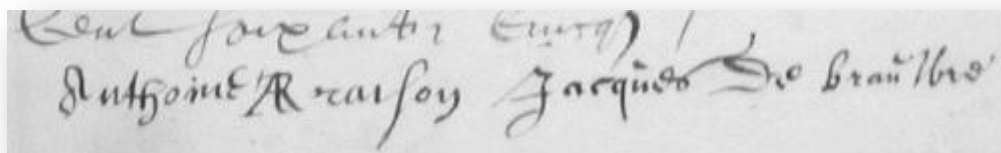 Cent soixante cincq
Anthoine Rraison Jacques De brau lbre